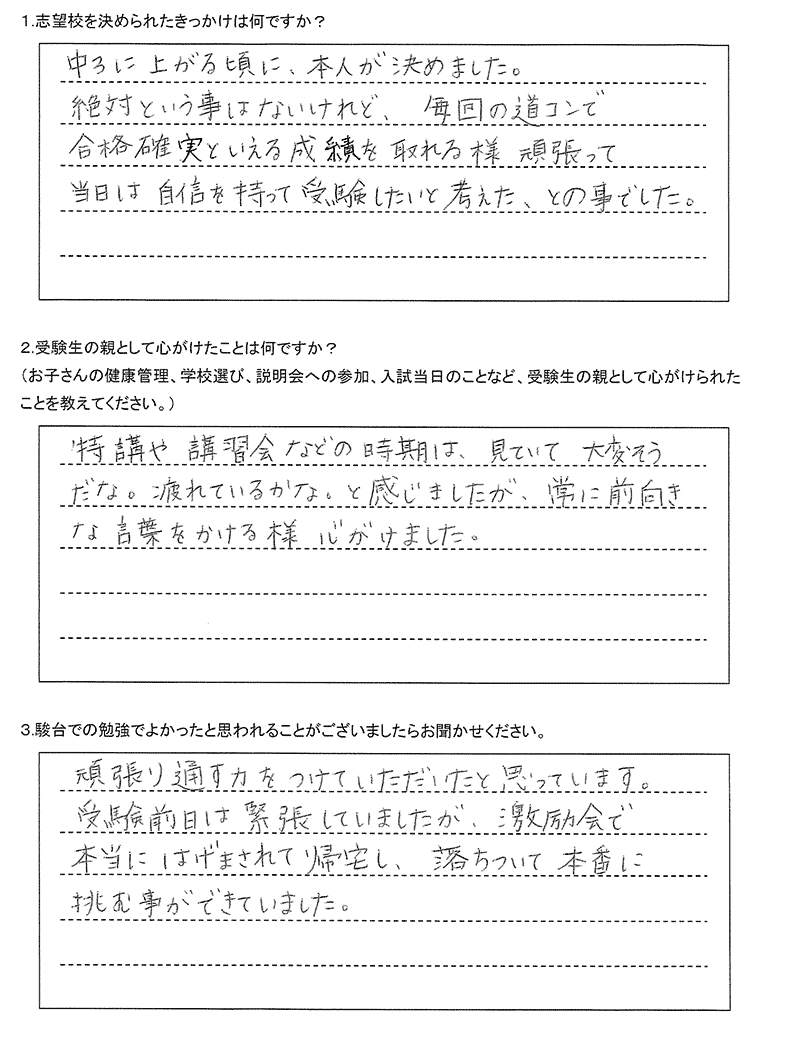 1.志望校を決められたきっかけは何ですか？
中3に上がる頃に、本人が決めました。
絶対という事はないけれど、毎回の道コンで
合格確実といえる成績を取れる様 頑張って
当日は自信を持って受験したいと考えた、との事でした。
2.受験生の親として心がけたことは何ですか？
（お子さんの健康管理、学校選び、説明会への参加、入試当日のことなど、受験生の親として心がけられた
ことを教えてください。）
特講や講習会などの時期は、見ていて大変そう
だな。疲れているかな。と感じましたが、常に前向き
な言葉をかける様 心がけました。
3.駿台での勉強でよかったと思われることがございましたらお聞かせください。
頑張り通す力をつけていただいたと思っています。
受験前日は緊張していましたが、激励会で
本当にはげまされて帰宅し、落ちついて本番に
挑む事ができていました。